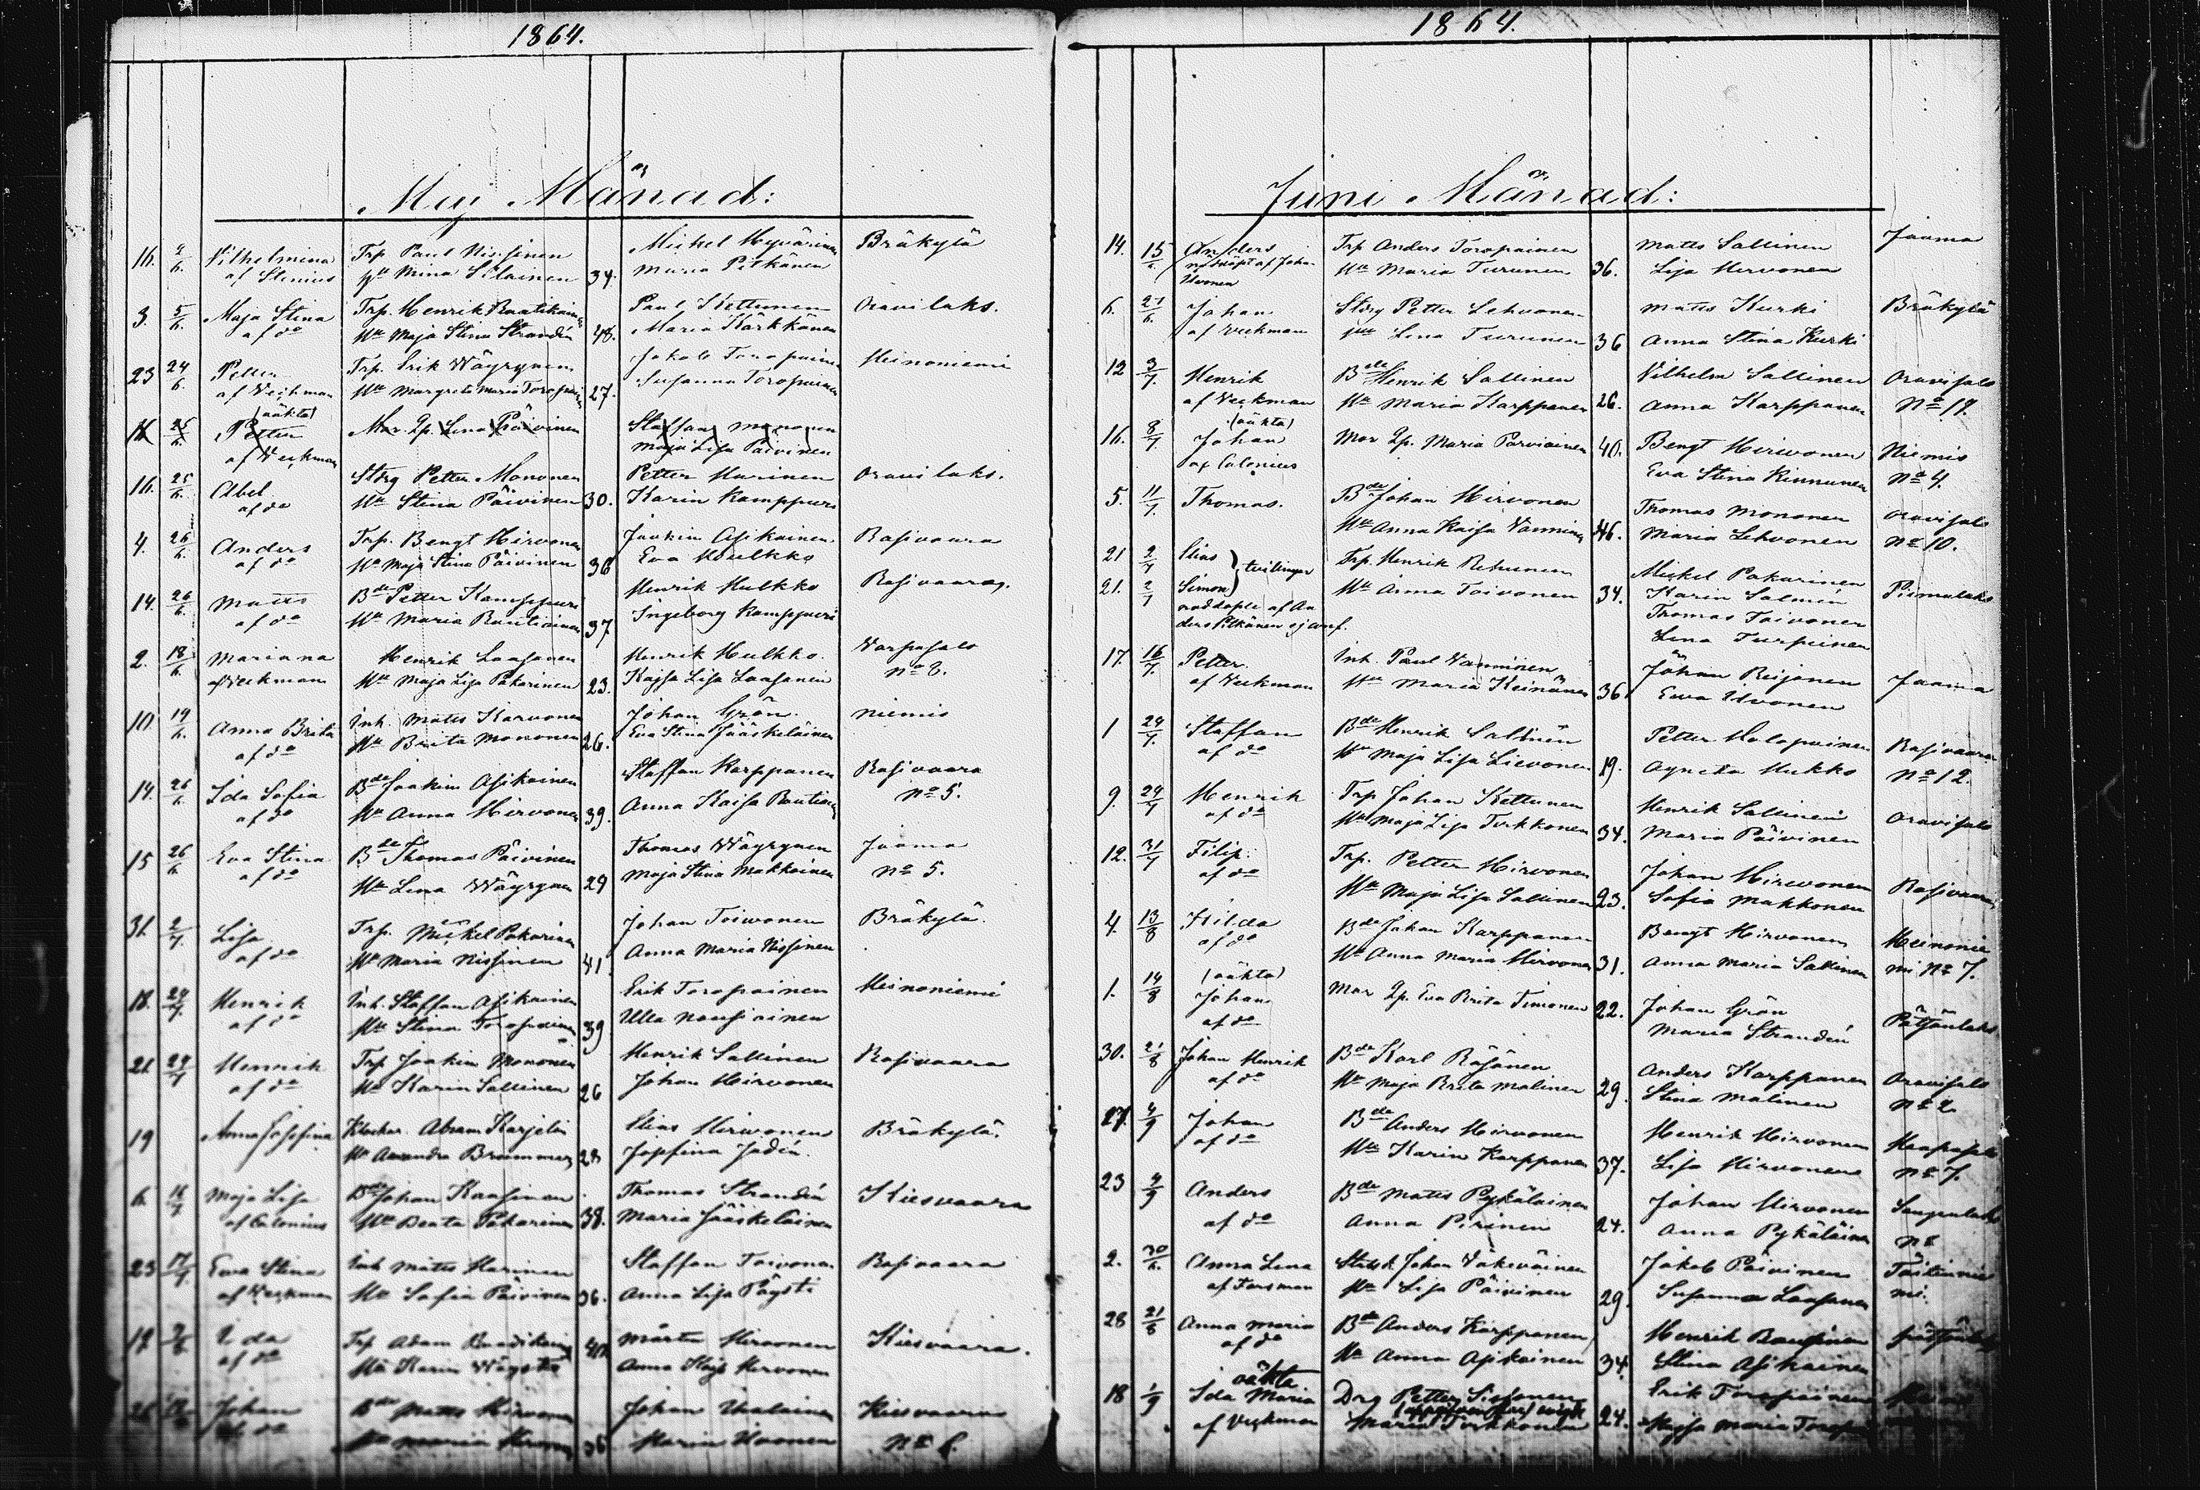 1864.
Maj Månad:
16. 2/6. Vilhelmina Trp Paul Nissinen Michel Hyvärinen Bräkylä
af Stenius Hu Mina Silainen 34. Maria Pitkänen
3. 5/6. Maja Stina Trp. Henrik Rautikainen Paul Kettunen Oravilaks.
af do Hu Maja Stina Strandén 48. Maria Kärkkänen
23 24/6. Petter Trp. Erik Wäyrynen Jakob Toropainen Heinoniemi
af Veckman Hu Margreta Maria Toropainen 27. Susanna Toropainen
(oäkta)
16 25/6. Petter Mor Qp. Lena Päivinen Staffan Mononen
af Veckman Maja Lisa Päivinen
16. 25/6. Abel Stdrg Petter Mononen Petter Harinen Oravilaks.
af do Hu Stina Päivinen 30. Karin Kamppuri
4. 26/6. Anders Trp. Bengt Hirvonen Joakim Asikainen Rasivaara
af do Hu Maja Stina Päivinen 36 Eva Hulkko
14. 26/6. Matts Bde Petter Kamppuri Henrik Hulkko Rasivaara
af do Hu Maria Rautiainen 37 Ingeborg Kamppuri
2. 18/6. Mariana Henrik Laasanen Henrik Hulkko. Varpasalo
af Veckman Hu Maja Lisa Pakarinen 23. Kajsa Lisa Laasanen No 8.
10. 19/6. Anna Brita Inh. Matts Karvonen Johan Grön. Niemis
af do Hu Brita Mononen 26. Eva Stina Jääskeläinen
14. 26/6. Ida Sofia Bde Joakim Asikainen Staffan Karppanen Rasivaara
af do Hu Anna Hirvonen 39. Anna Kaisa Rautiainen No 5.
15 26/6. Eva Stina Bde Thomas Päivinen Thomas Wäyrynen Jaama
af do Hu Lena Wäyrynen 29 Maja Stina Makkoinen No 5.
31. 2/7. Lisa Trp. Mickel Pakarinen Johan Toivonen Bräkylä.
af do Hu Maria Nissinen 41. Anna Maria Nissinen
18. 24/7. Henrik Inh. Staffan Asikainen Erik Toropainen Heinoniemi
af do Hu Stina Toropainen 39 Ulla Nousiainen
21. 24/7 Henrik Trp Joakim Mononen Henrik Sallinen Rasivaara
af do Hu Karin Sallinen 26 Johan Hirvonen
19 Anna Josefina Klockar. Abram Karjelin Elias Hirvonen Bräkylä.
Hu Amanda Brummer 28 Josefina Jadin.
6. Maja Lisa Bde Johan Kaasinen Thomas Strandén Kiesvaara
af Calonius Hu Beata Pakarinen 38. Maria Jääskeläinen
23 17/7 Eva Stina Inh Matts Harinen Staffan Toivonen Rasivaara
af Veckman Hu Sofia Päivinen 36. Anna Lisa Pöysti
Ida Trp Adam Mårten Hirvonen Kiesvaara.
af do Hu Karin Anna Kajs Hirvonen
Johan Bde Matts Hirvonen Johan Kiesvaara
af do Hu Maria 36 Maria No
1864.
Juni Månad:
14. 15/6. Anders Trp Anders Toropainen Matts Sallinen Jaama
nöddöpt af Joha Hu Maria Turunen 36. Lisa Hirvonen
6. 21/6. Johan Stdrg Petter Lehvonen Matts Kurki Bräkylä
af Veckman Hu Lena Turunen 36 Anna Stina Kurki
12 3/7. Henrik Bde Henrik Sallinen Vilhelm Sallinen Oravisalo
af Veckman Hu Maria Karppanen 26. Anna Karppanen No 17.
(oäkta)
16. 8/7. Johan Mor Qp. Maria Parviainen 40. Bengt Hirvonen Niemis
af Calonius Eva Stina Kinnunen No 4.
5. 11/7. Thomas. Bde Johan Hirvonen Thomas Mononen Oravisalo
Hu Anna Kaisa Vanninen 46. Maria Lehvonen No 10.
21 2/7 Elias } tvillingar Trp. Henrik Rehunen Mickel Pakarinen
21. 2/7 Simon Hu Anna Toivonen 34. Karin Salmén Piimalaks
nöddöpte af An Thomas Toivonen
ders Pitkänen ej anf. Lena Turpeinen
17. 16/7. Petter Inh. Paul Vanninen Johan Reijonen Jaama
af Veckman Hu Maria Keinänen 36. Eva Ilvonen
1 24/7. Staffan Bde Henrik Sallinen Petter Holopainen Rasivaara
af do Hu Maja Lisa Lievonen 19. Agneta Hukko No 12.
9. 24/7 Henrik Trp Johan Kettunen Henrik Sallinen Oravisalo
af do Hu Maja Lisa Tirkkonen 34. Maria Päivinen
12. 31/7 Filip. Trp. Petter Hirvonen Johan Hirvonen Rasivaara
af do Hu Maja Lisa Sallinen 23. Sofia Makkonen
4. 13/8 Hilda Bde Johan Karppanen Bengt Hirvonen Heinonie
af do Hu Anna Maria Hirvonen 31. Anna Maria Sallinen mi No 7.
(oäkta)
1. 14/8 Johan Mor Qp. Eva Brita Timonen 22. Johan Grön Pätsönlaks
af do Maria Strandén
30. 21/8 Johan Henrik Bde Karl Räsänen Anders Karppanen Oravisalo
af do Hu Maja Brita Malinen 29. Stina Malinen No 2
17. 4/9 Johan Bde Anders Hirvonen Henrik Hirvonen Haapasalo
af do Hu Karin Karppanen 37. Lisa Hirvonen No 7.
23 4/9 Anders Bde Matts Pykäläinen Johan Hirvonen
af do Anna Pirinen 24. Anna Pykäläinen No
2. 30/6. Anna Lena Johan Väkeväinen Jakob Päivinen
af Forsman Hu Lisa Päivinen 29. Susanna Laasanen mi.
28 21/8 Anna Maria Bde Anders Karppanen Henrik
af do Hu Anna Asikainen 34 Stina Asikainen
oäkta
18 1/9 Ida Maria Drg Petter Erik Toropainen
af Veckman Maria Tirkkonen 24. Kajsa Maria